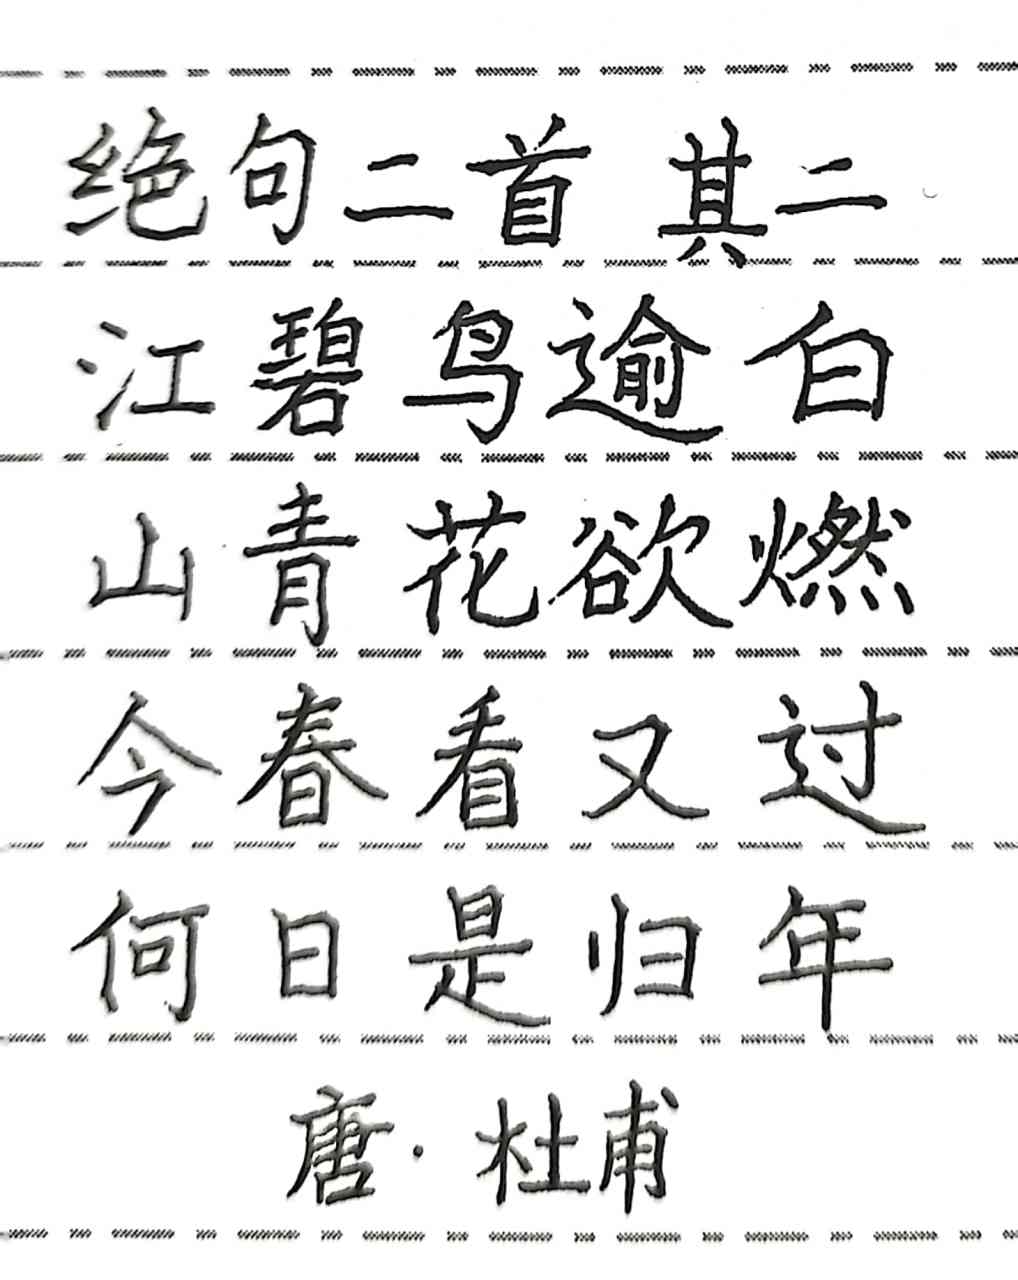 绝句二首 其二
江碧鸟逾白
山青花欲燃
今春看又过
何日是归年
唐·杜甫